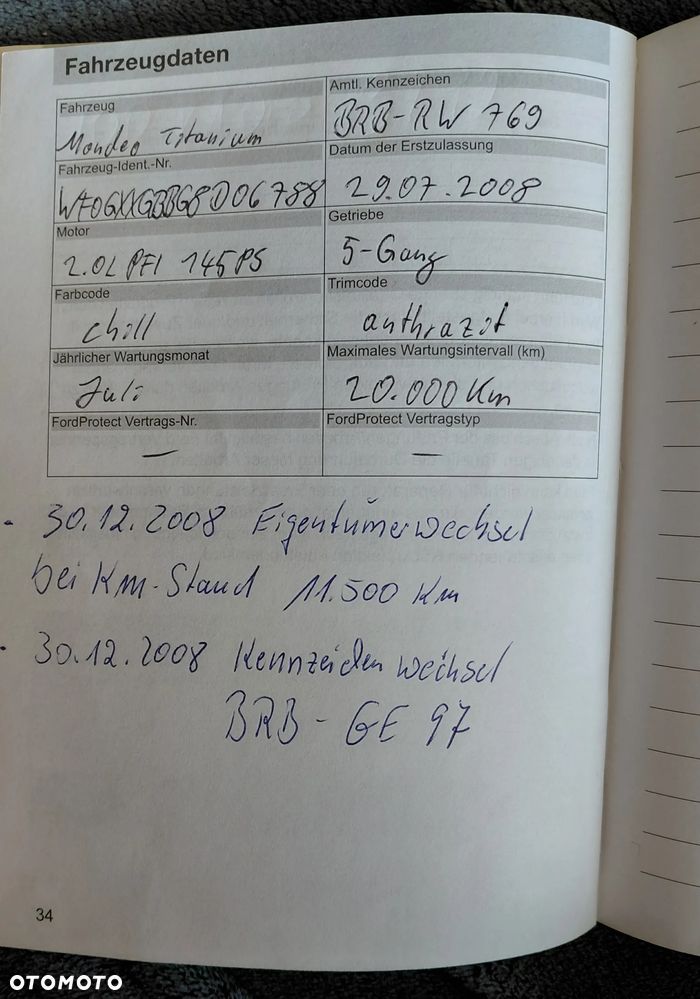 Fahrzeugdaten
Fahrzeug
Mondeo Titanium
Amtl. Kennzeichen
BRB-RW 769
Fahrzeug-Ident.-Nr.
WF0GXXGBBG8D06788
Datum der Erstzulassung
29.07.2008
Motor
2.0L PFI 145PS
Getriebe
5-Gang
Farbcode
chill
Trimcode
anthrazit
Jährlicher Wartungsmonat
Juli
Maximales Wartungsintervall (km)
20.000 Km
FordProtect Vertrags-Nr.
—
FordProtect Vertragstyp
—
- 30.12.2008 Eigentümerwechsel
bei Km-Stand 11.500 Km
- 30.12.2008 Kennzeichenwechsel
BRB - GE 97
34
OTOMOTO